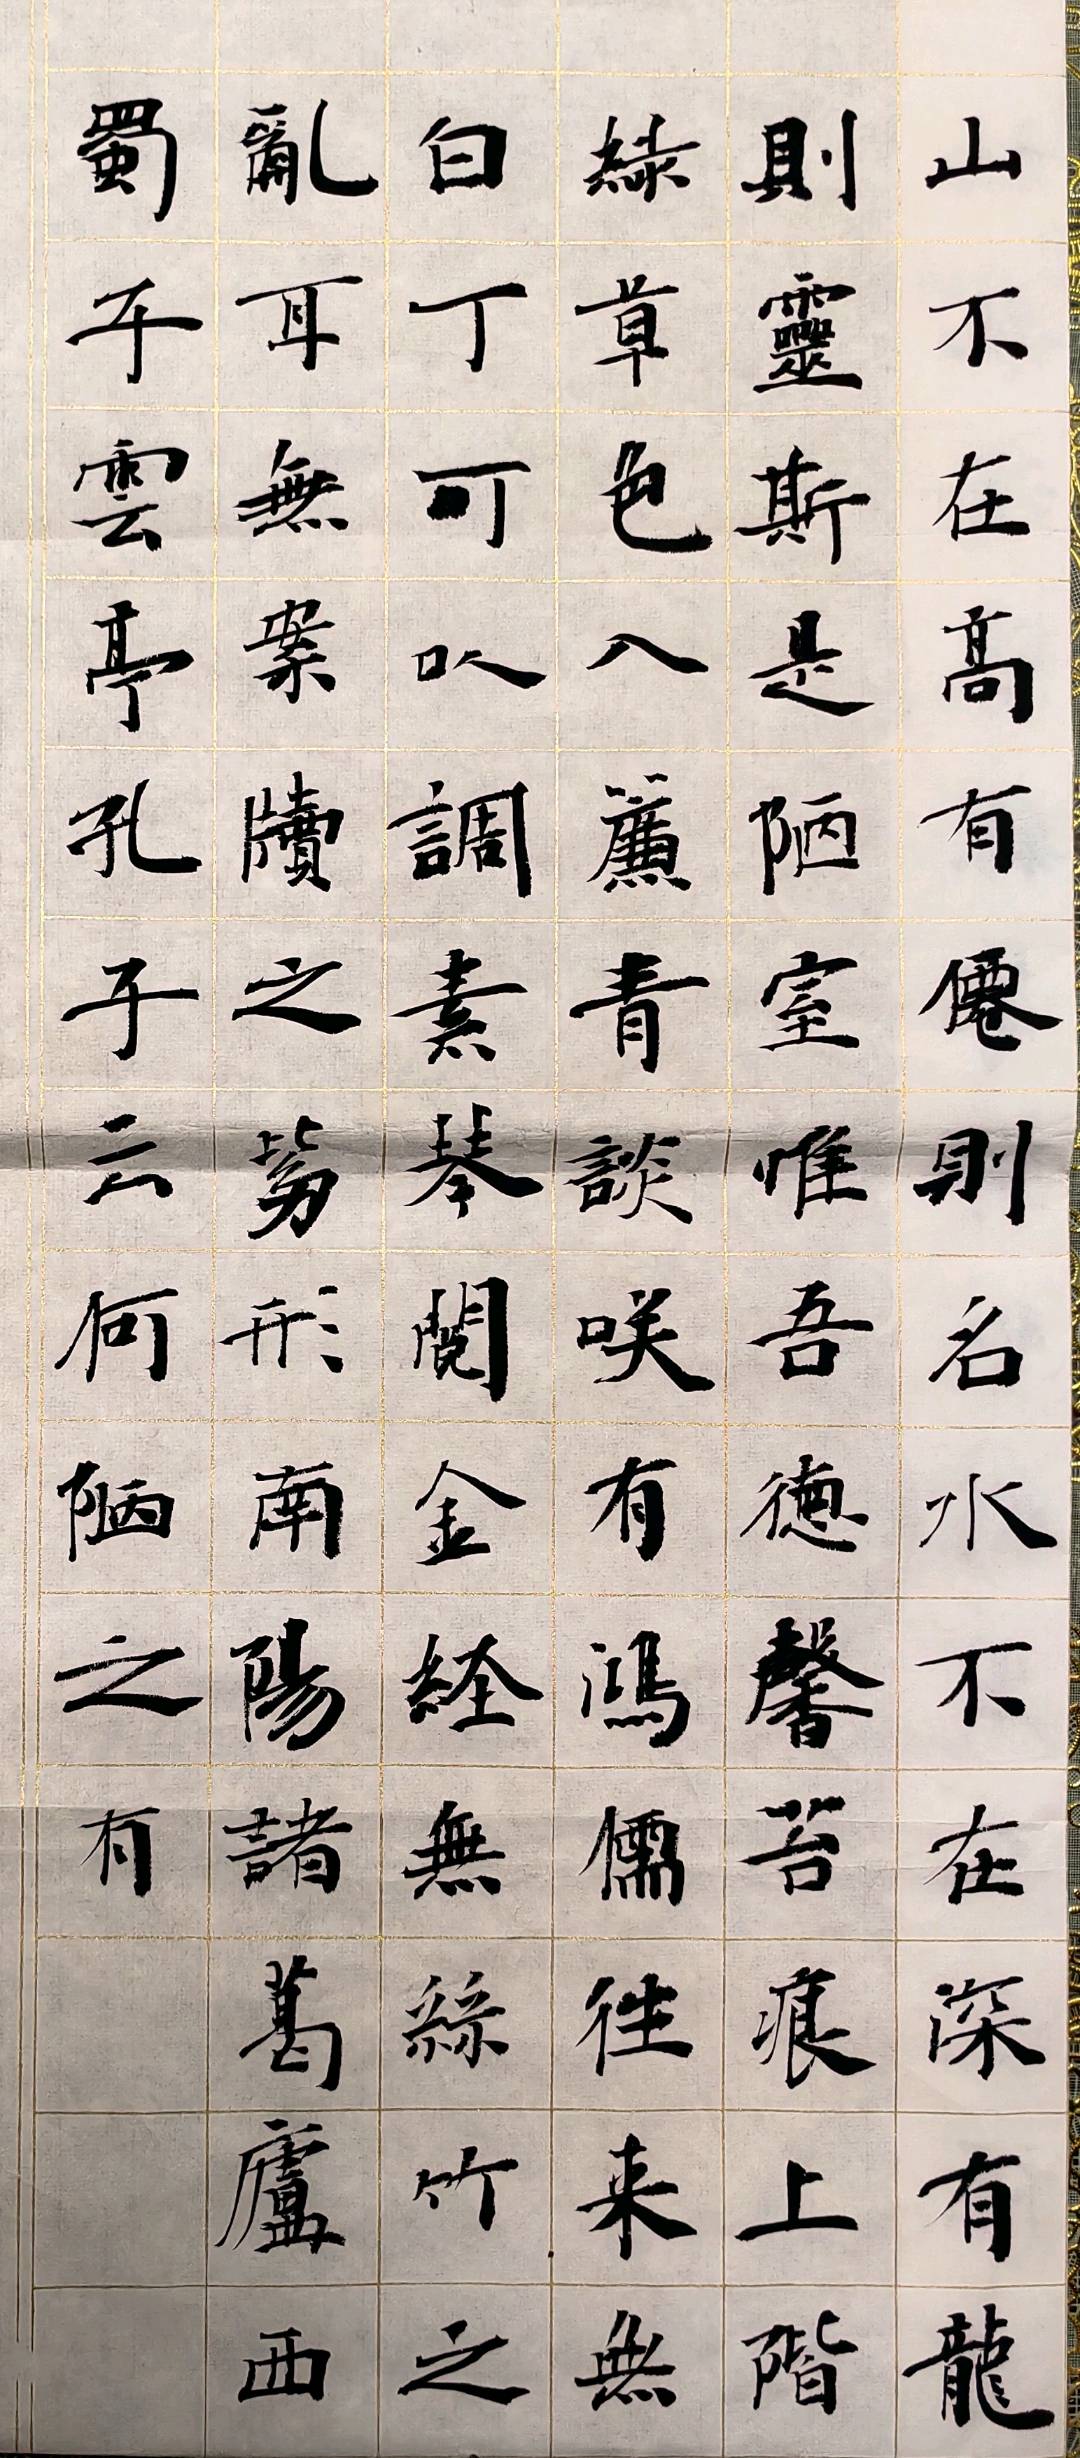 山不在高有僊則名水不在深有龍
則靈斯是陋室唯吾德馨苔痕上階
綠草色入簾青談咲有鴻儒往来無
白丁可以調素琴閱金経無絲竹之
亂耳無案牘之勞形南陽諸葛廬西
蜀子雲亭孔子云何陋之有